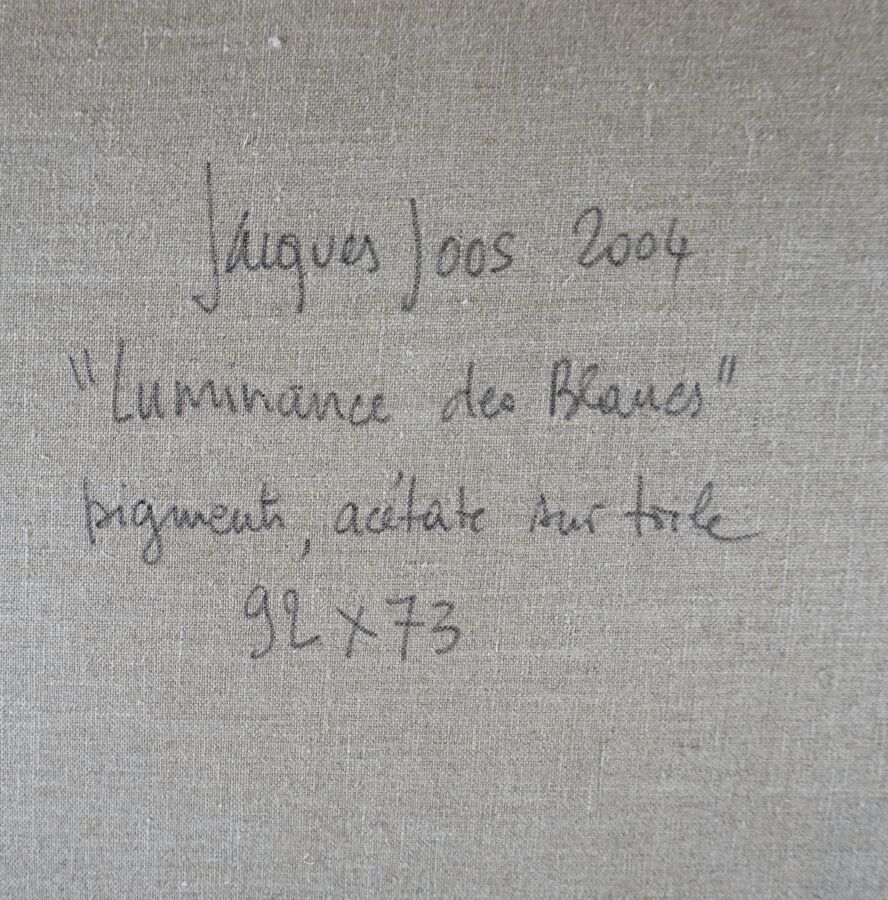 Jacques Joos 2004
"Luminance des Blancs"
pigments, acétate sur toile
92 x 73